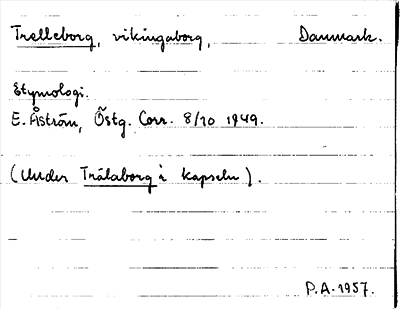 Trelleborg, vikingaborg, Danmark.
Etymologi.
E. Åström, Östg. Corr. 8/10 1949.
(Under Trälaborg i kapseln).
P.A. 1957.